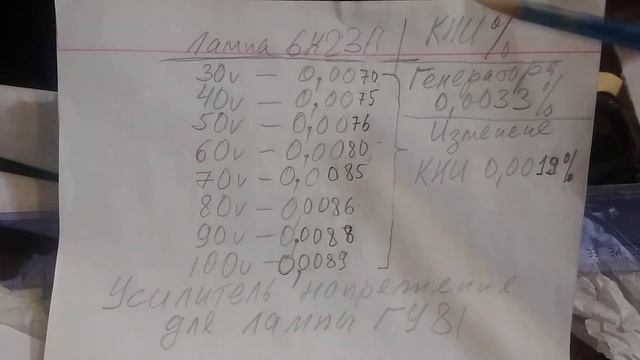 Лампа 6Н23П | КНИ %
30v — 0,0070 Генератора
40v — 0,0075 0,0033%
50v — 0,0076 Изменение
60v — 0,0080
70v — 0,0085 КНИ 0,0019%
80v — 0,0086
90v — 0,0088
100v — 0,0089
Усилитель напряжения
для лампы ГУ81